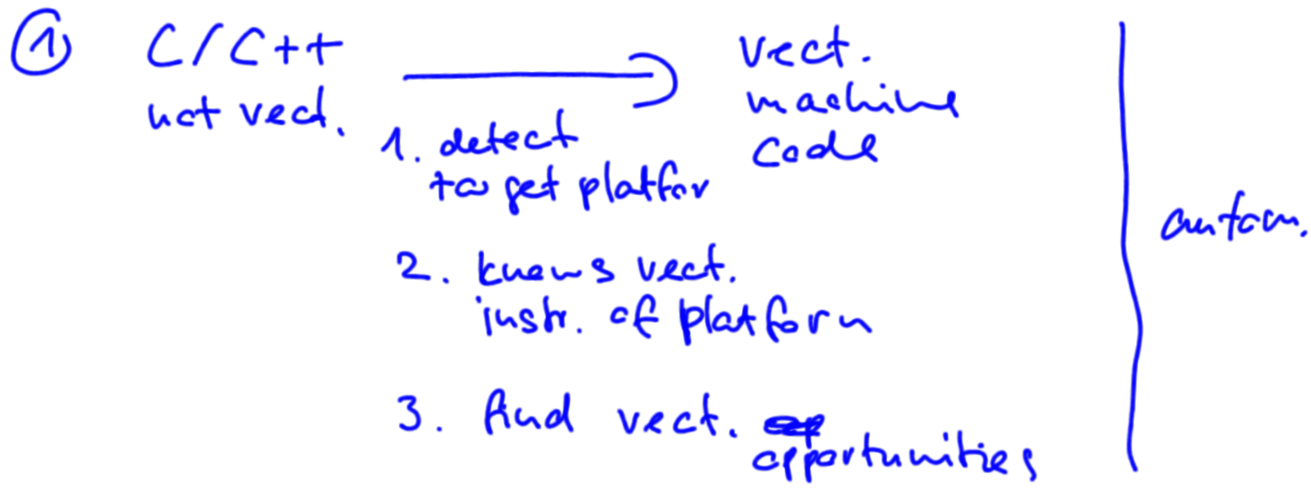 ① C/C++
not vect.
vect.
machine
code
1. detect
target platfor
2. knows vect.
instr. of platform
3. find vect.
opportunities
autom.